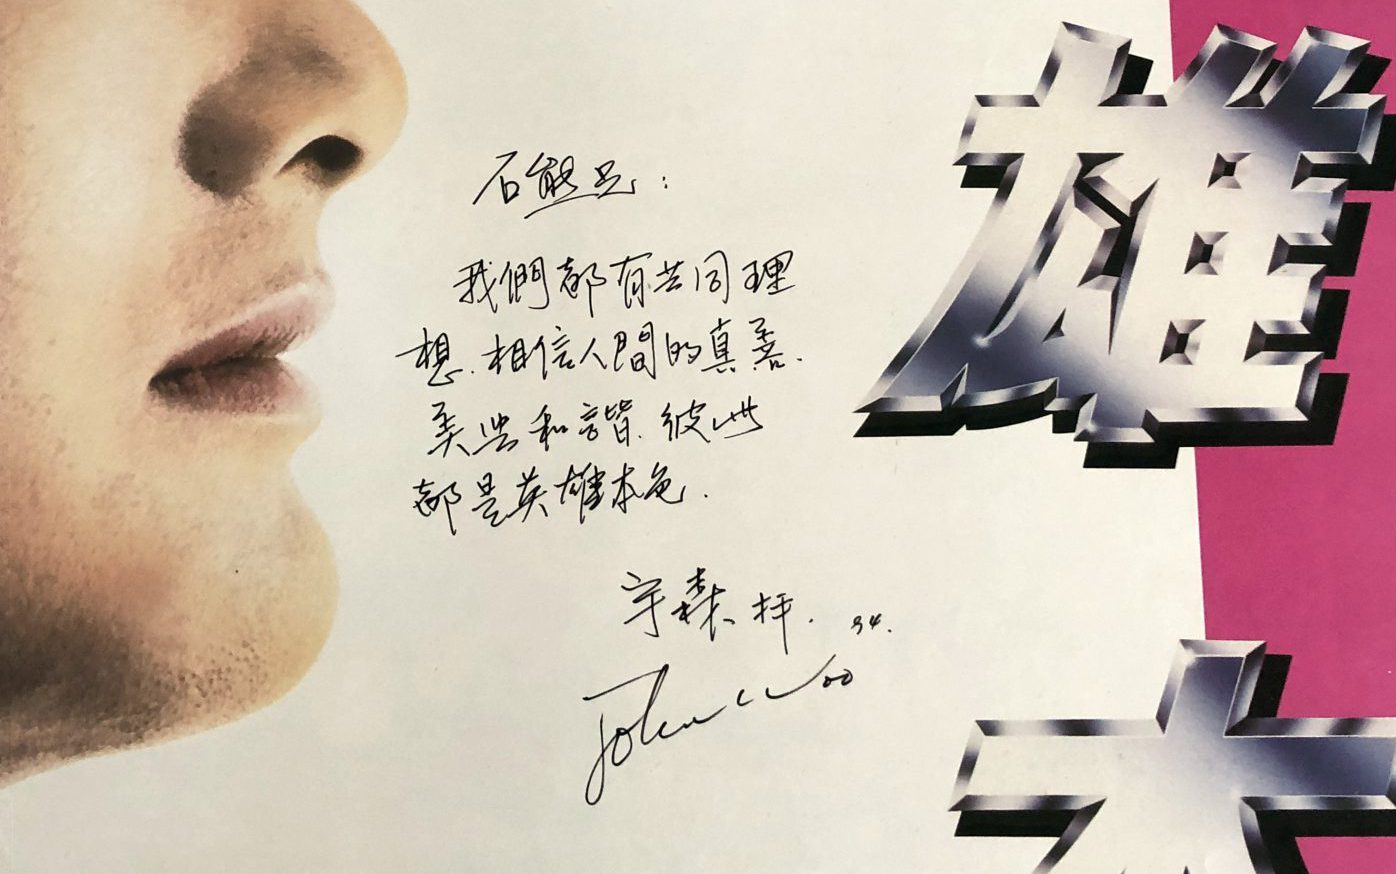 石熊兄：
我們都有共同理
想.相信人間的真善.
美與和諧.彼此
都是英雄本色.
宇森拜. 94.
John Woo
雄
本